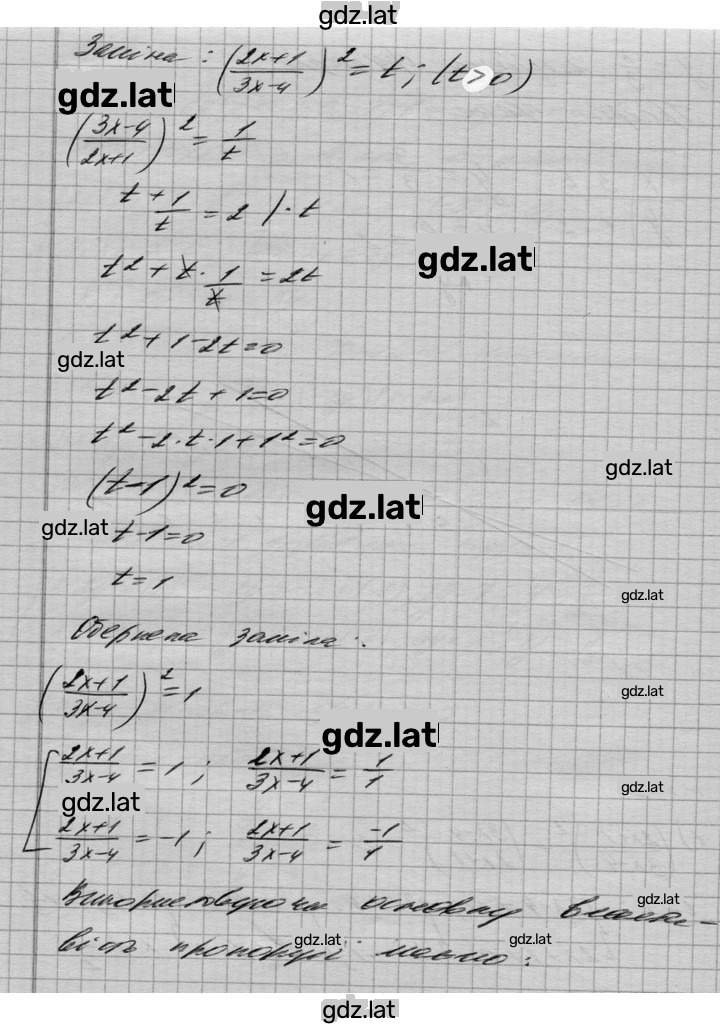 gdz.lat
Заміна: ((2x+1)/(3x-4))² = t; (t>0)
gdz.lat
((3x-4)/(2x+1))² = 1/t
t + 1/t = 2 |·t
gdz.lat
t² + t·1/t = 2t
t² + 1 - 2t = 0
gdz.lat
t² - 2t + 1 = 0
t² - 2·t·1 + 1² = 0
gdz.lat
(t-1)² = 0
gdz.lat
gdz.lat
t-1=0
t=1
gdz.lat
Обернена заміна:
((2x+1)/(3x-4))² = 1
gdz.lat
gdz.lat
(2x+1)/(3x-4) = 1; (2x+1)/(3x-4) = 1/1
gdz.lat
gdz.lat
(2x+1)/(3x-4) = -1; (2x+1)/(3x-4) = -1/1
Використовуючи основну власти-
gdz.lat
вість пропорції маємо:
gdz.lat
gdz.lat
gdz.lat